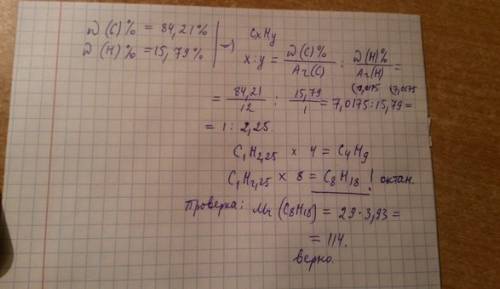 W (C)% = 84,21%
W (H)% = 15,79%
CxHy
x:y = W(C)% / Ar(C) : W(H)% / Ar(H) =
= 84,21 / 12 : 15,79 / 1 = 7,0175 : 15,79 = (7,0175 (7,0175
= 1 : 2,25
C₁H₂,₂₅ × 4 = C₄H₉
C₁H₂,₂₅ × 8 = C₈H₁₈ ! октан.
Проверка: Mr (C₈H₁₈) = 29·3,93 =
= 114.
верно.